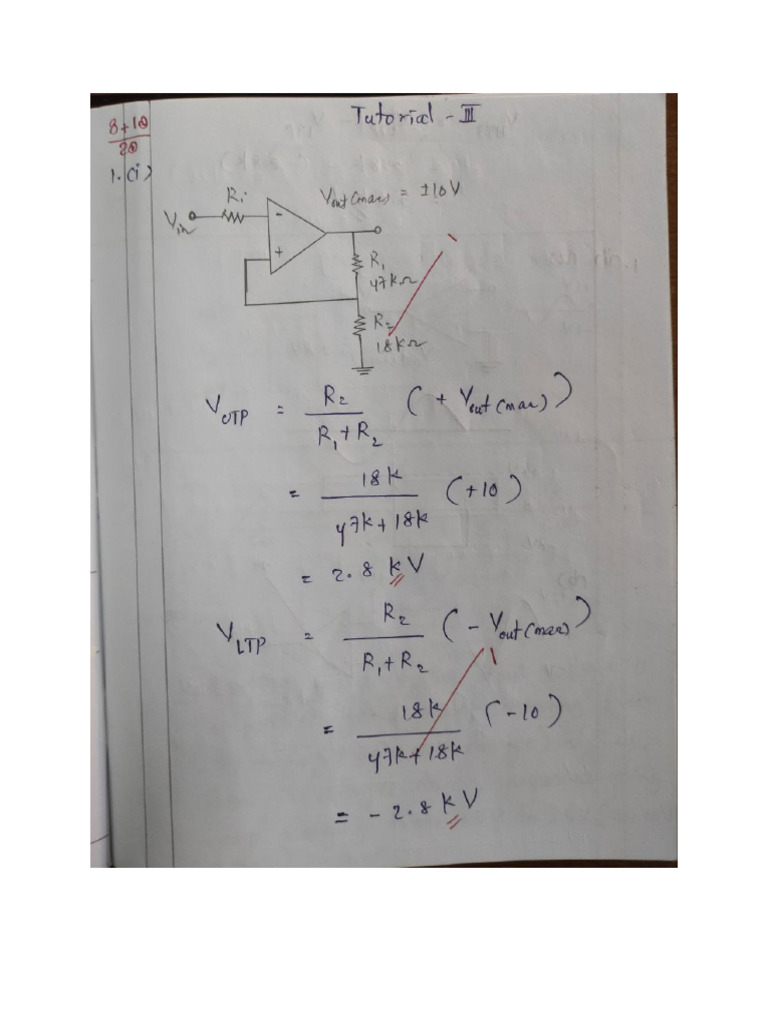 Tutorial - III
8+10
20
1. (i)
Ri
Vout(max) = ±10V
Vin
-
+
R1
47kΩ
R2
18kΩ
VUTP = R2 / R1+R2 (+ Vout(max))
= 18k / 47k+18k (+10)
= 2.8 kV
VLTP = R2 / R1+R2 (- Vout(max))
= 18k / 47k+18k (-10)
= - 2.8 kV